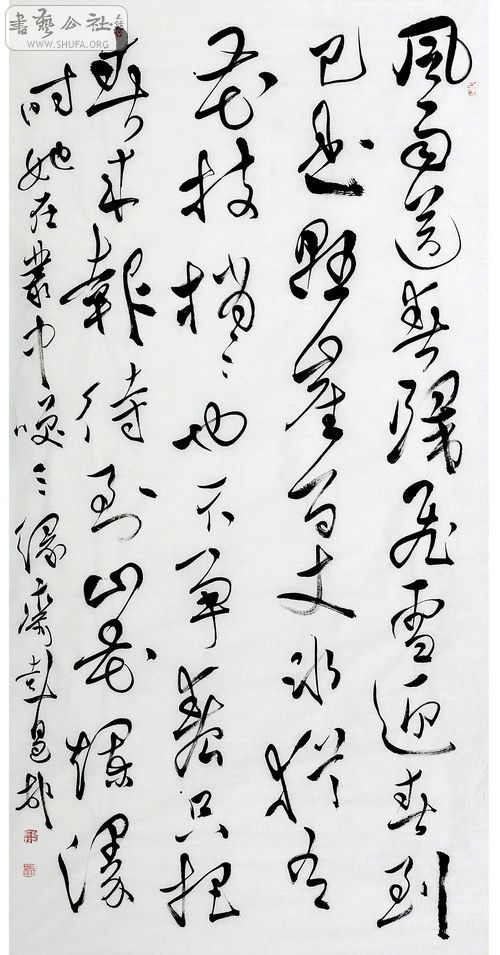 書藝公社
WWW.SHUFA.ORG
風雨送春歸飛雪迎春到
已是懸崖百丈冰猶有
花枝俏〻也不争春只把
春来報待到山花爛漫
時她在叢中咲